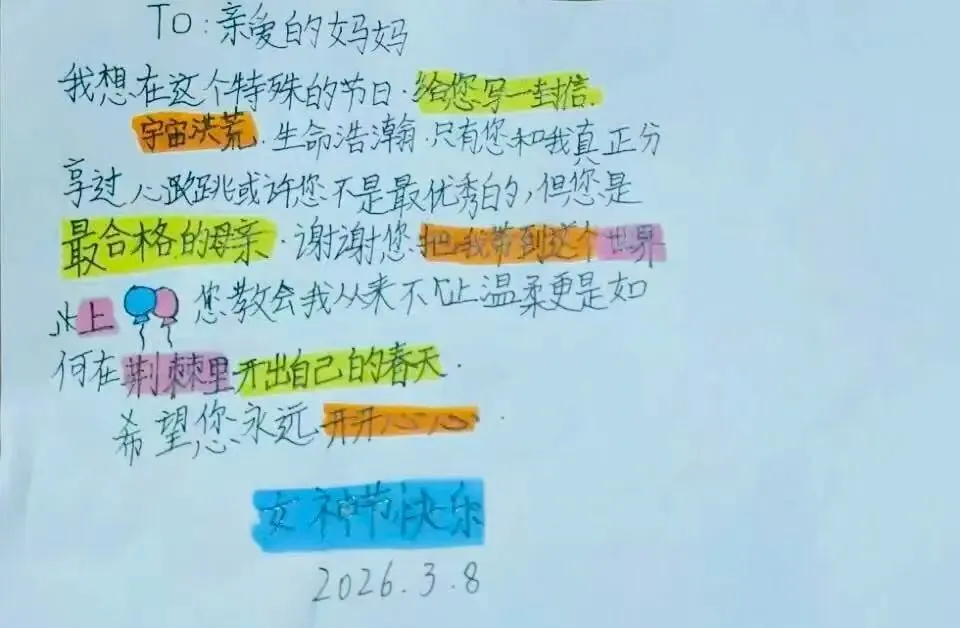 To:亲爱的妈妈
我想在这个特殊的节日.给您写一封信.
宇宙洪荒.生命浩瀚.只有您和我真正分
享过 心跳或许您不是最优秀的,但您是
最合格的母亲.谢谢您把我带到这个世界
上 您教会我从来不止温柔更是如
何在荆棘里开出自己的春天.
希望您永远开开心心.
女神节快乐
2026.3.8